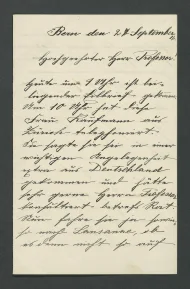 Bern den 24 September
Hochgeehrter Herr Professor.
Heute um 9 Uhr ist bei-
liegender gekom
Um 10 Uhr hat diese
Frau Kaufmann aus
Zürich telephoniert.
Sie sagte sie sei in einer
wichtigen Angelegenheit
extra aus Deutschland
gekommen und hätte
sehr gerne Herrn Professor
konsultiert betreffs Rat.
Nun fahre sie ja
so nach Lausanne, ob
es denn nicht so auf